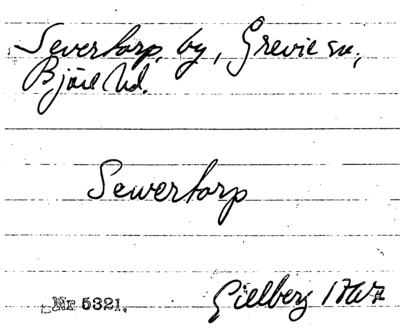 Severtorp, by, Grevie sn,
Bjäre hd.
Sewertorp
Nr 5321.
Gillberg